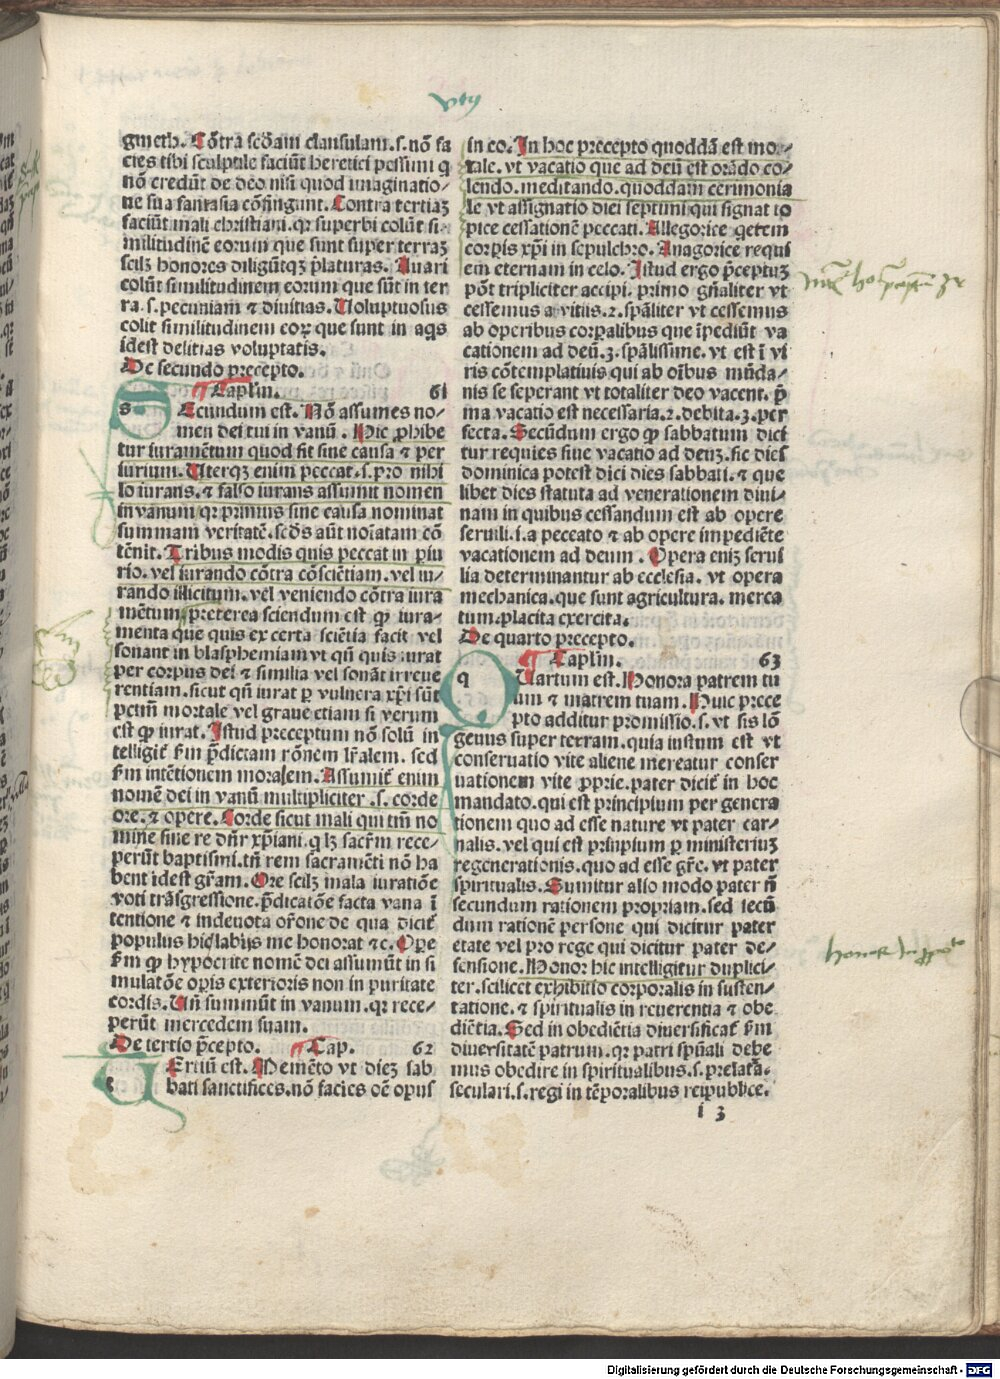 gineth. Cõtra scd̃am clausulam.s.nõ fa
cies tibi sculptile faciũt heretici pessimi q
nõ credũt de deo nisi quod imaginatio⸗
ne sua fantasia cõfingunt. Contra tertiaʒ
faciũt mali christiani.qꝛ superbi colũt si⸗
militudinẽ eorum que sunt super terraʒ
scilʒ honores diligũtqʒ p̃laturas. Auari
colũt similitudinem eorum que sũt in ter
ra.s.pecuniam ⁊ diuitias. Uoluptuosus
colit similitudinem eoꝝ que sunt in aqs
idest delitias voluptatis.
De secundo precepto.
¶ Caplm̃. 61
SEcundum est. Nõ assumes no⸗
men dei tui in vanũ. Hic ꝓhibe
tur iuramẽtum quod fit sine causa ⁊ per
iurium. Uterqʒ enim peccat.s.pro nihi
lo iurans.⁊ falso iurans assumit nomen
in vanum qꝛ primus sine causa nominat
summam veritatẽ.scd̃s aũt noĩatam cõ
tẽnit. Tribus modis quis peccat in ꝑiu
rio.vel iurando cõtra cõsciẽtiam.vel iu⸗
rando illicitum.vel veniendo cõtra iura
mẽtum.preterea sciendum est ꝙ iura⸗
menta que quis ex certa sciẽtia facit vel
sonant in blasphemiam vt qñ quis iurat
per corpus dei ⁊ similia vel sonãt irreue
rentiam.sicut qñ iurat ꝑ vulnera xp̃i sũt
pctm̃ mortale vel graue etiam si verum
est ꝙ iurat. Istud preceptum nõ solũ in
telligit᷑ ẜm p̃dictam rõnem lr̃alem. sed
ẜm intẽtionem moralem. Assumit᷑ enim
nomẽ dei in vanũ multipliciter.s.corde
ore.⁊ opere. Corde sicut mali qui tm̃ no
mine sine re dñr xp̃iani.q lʒ sacr̃m rece⸗
perũt baptismi.tñ rem sacramẽti nõ ha
bent idest gr̃am. Ore scilʒ mala iuratiõe
voti trãsgressione.p̃dicatõe facta vana ĩ
tentione ⁊ indeuota or̃one de qua dicit᷑
populus hic labijs me honorat ⁊c. Ope
ẜm ꝙ hypocrite nomẽ dei assumũt in si
mulatõe opis exterioris non in puritate
cordis. Uñ summũt in vanum.qꝛ rece⸗
perũt mercedem suam.
De tertio p̃cepto. ¶ Cap. 62
TErtiũ est. Memẽto vt dieʒ sab
bati sanctifices.nõ facies oẽ opus
in eo. In hoc precepto quoddã est mo⸗
rale.vt vacatio que ad deũ est orãdo co⸗
lendo.meditando.quoddam cerimonia
le vt assignatio diei septimi qui signat to
pice cessationẽ peccati. Allegorice qetem
corꝑis xp̃i in sepulchro. Anagorice requi
em eternam in celo. Istud ergo p̃ceptuʒ
põt tripliciter accipi. primo gñaliter vt
cessemus a vitiis.2.spãliter vt cessemus
ab operibus corꝑalibus que ĩpediũt va
cationem ad deũ.3.spãlissime.vt est ĩ vi
ris cõtemplatiuis qui ab oĩbus mũda⸗
nis se seperant vt totaliter deo vacent. p̃
ma vacatio est necessaria.2.debita.3.per
fecta. Secũdum ergo ꝙ sabbatum dici
tur requies siue vacatio ad deuʒ.sic dies
dominica potest dici dies sabbati.⁊ que
libet dies statuta ad venerationem diui⸗
nam in quibus cessandum est ab opere
seruili.i.a peccato ⁊ ab opere impediẽte
vacationem ad deum. Opera eniʒ serui
lia determinantur ab ecclesia. vt opera
mechanica.que sunt agricultura. merca
tum.placita exercita.
De quarto precepto.
¶ Caplm̃. 63
QUartum est. Honora patrem tu
um ⁊ matrem tuam. Huic prece
pto additur promissio.s.vt sis lõ
geuus super terram.quia iustum est vt
conseruatio vite aliene mereatur conser
uationem vite ꝓprie.pater dicit᷑ in hoc
mandato.qui est principium per genera
tionem quo ad esse nature vt pater car⸗
nalis.vel qui est prinpium ꝑ ministeriuʒ
regenerationis.quo ad esse gr̃e.vt pater
spiritualis. Sumitur alio modo pater ñ
secundum rationem propriam.sed secũ
dum rationẽ persone qui dicitur pater
etate vel pro rege qui dicitur pater de⸗
fensione. Honor hic intelligitur duplici⸗
ter.scilicet exhibitio corporalis in susten⸗
tatione.⁊ spiritualis in reuerentia ⁊ obe
diẽtia. Sed in obediẽtia diuersificat᷑ ẜm
diuersitatẽ patrum.qꝛ patri spũali debe
mus obedire in spiritualibus.s.prelatã.
seculari.s.regi in tẽporalibus reipublice.
i 3
Digitalisierung gefördert durch die Deutsche Forschungsgemeinschaft - DFG